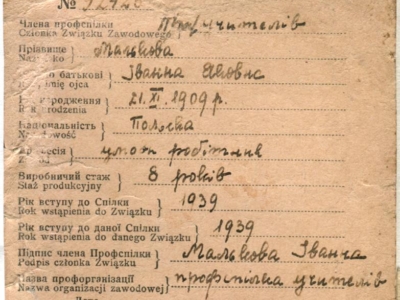 № 92420
Члена профспілки
Członka Związku Zawodowego
Проф. учителів
Прізвище
Nazwisko
Малькова
батькові
ojca
Іванна
народження
urodzenia
21. XI. 1909 р.
Національність
Полька
умов. робітник
Виробничий стаж
Staż produkcyjny
8 років
Рік вступу до Спілки
Rok wstąpienia do Związku
1939
Рік вступу до даної Спілки
Rok wstąpienia do danego Związku
1939
Підпис члена Профспілки
Podpis członka Związku
Малькова Іванна
Назва профорганізації
Nazwa organizacji zawodowej
профспілка учителів